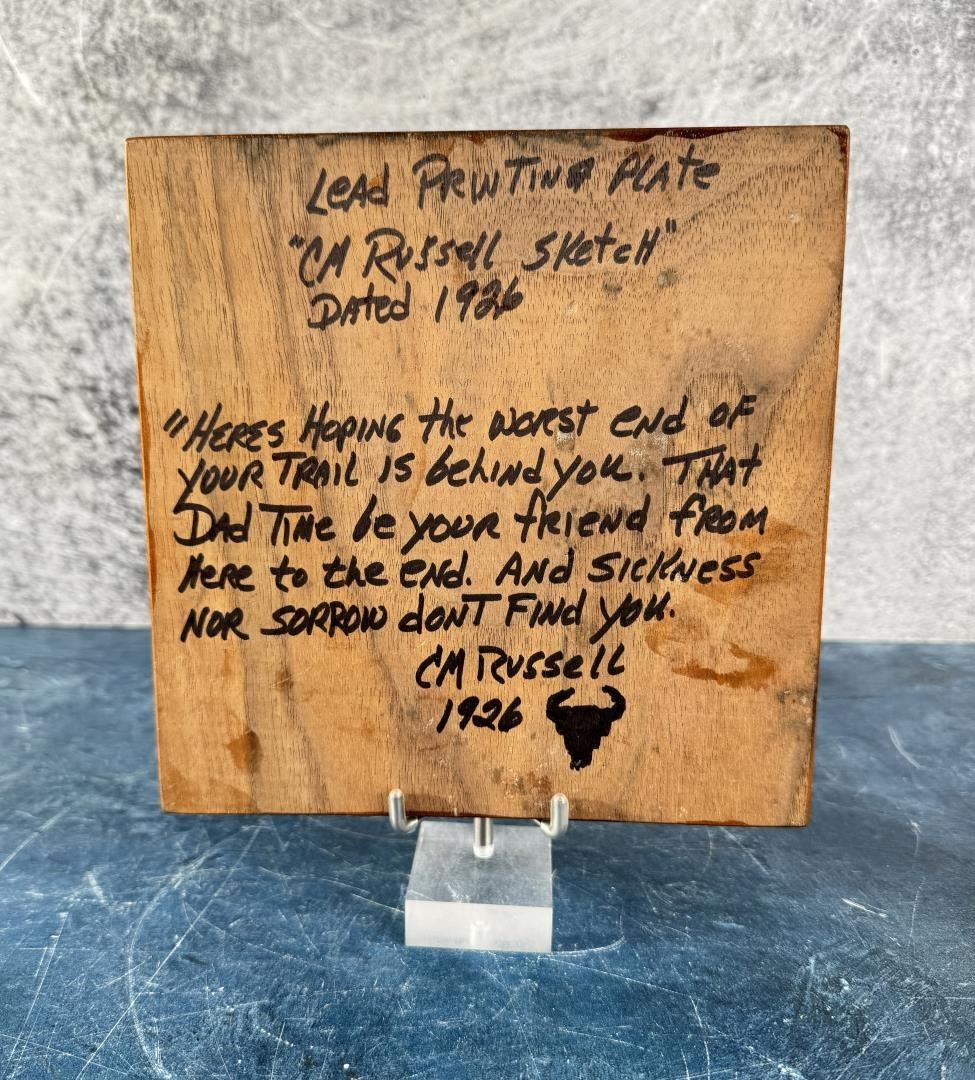 Lead Printing Plate
"CM Russell Sketch"
Dated 1926
"Heres Hoping the worst end of
your Trail is behind you. That
Dad Time be your friend from
Here to the end. And Sickness
nor sorrow dont Find you.
CM Russell
1926